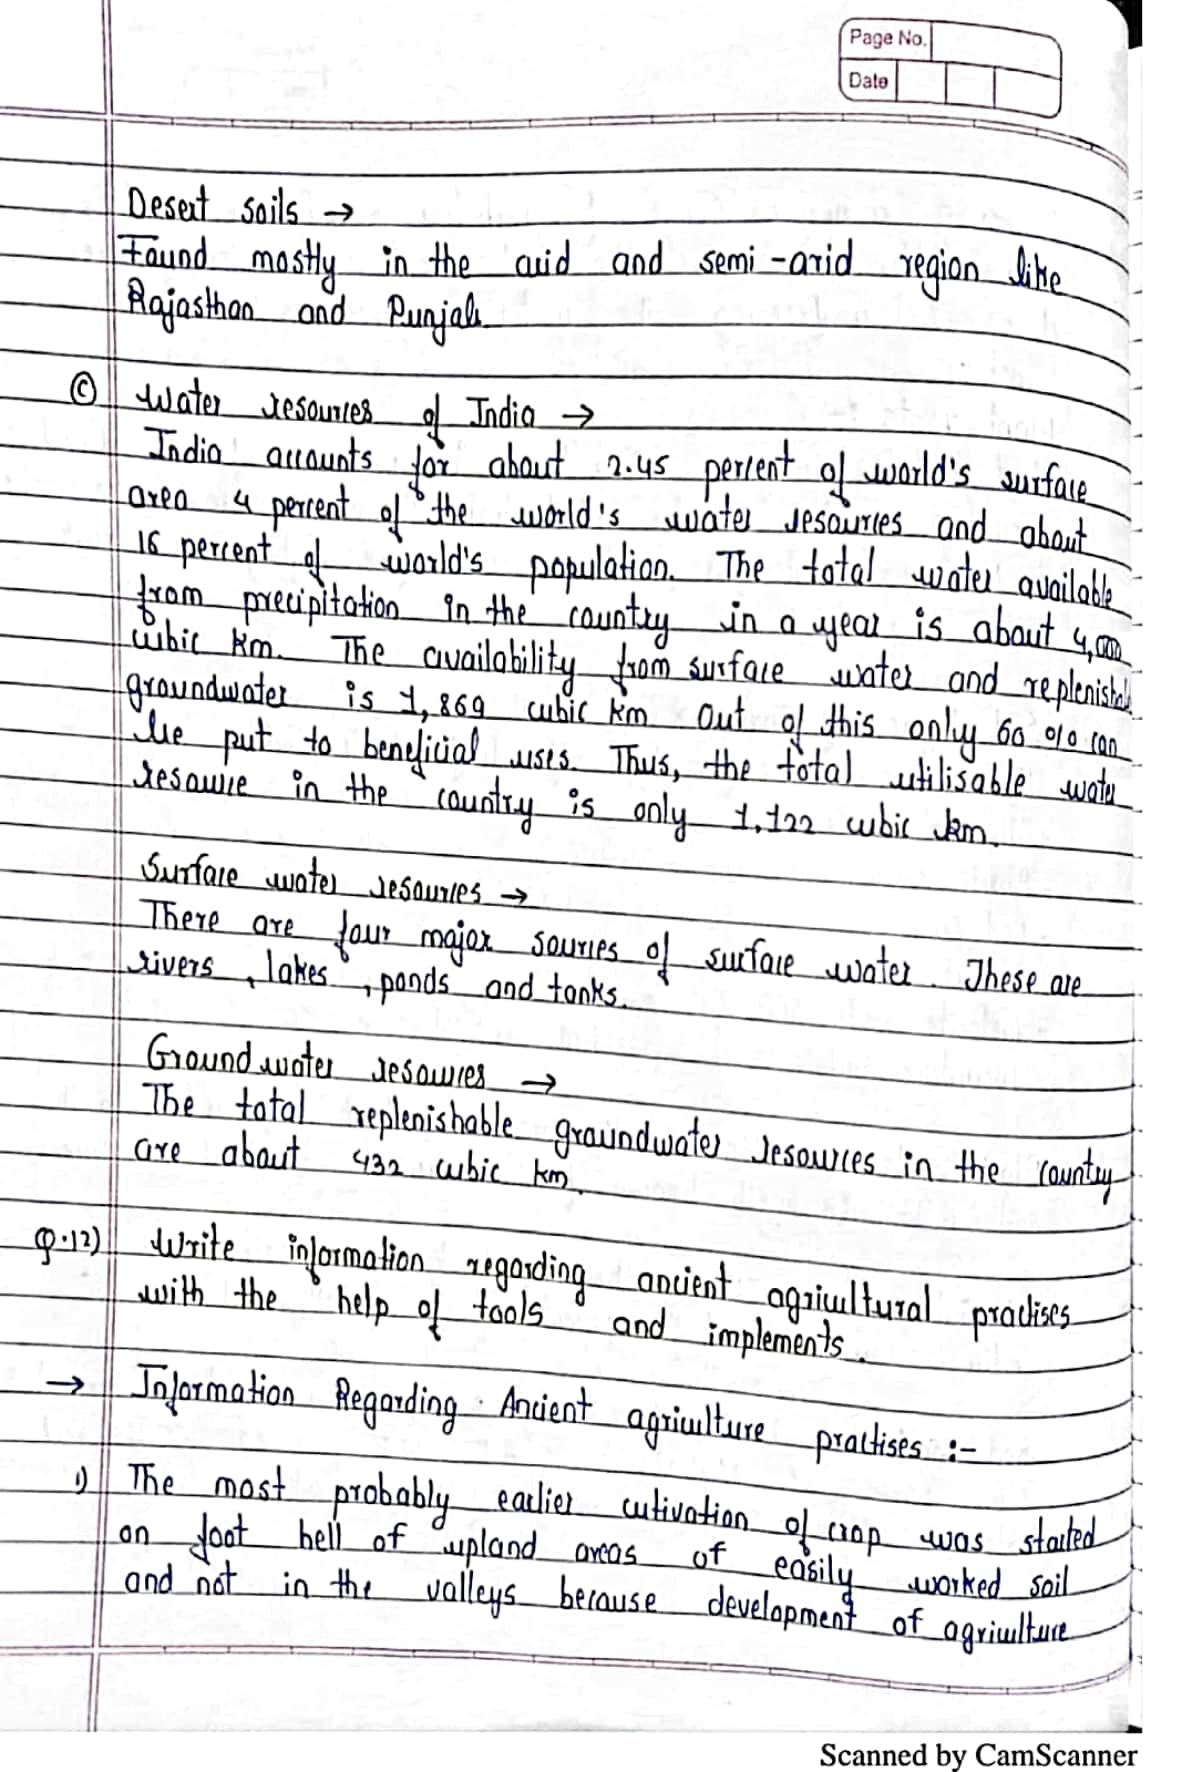 Page No.
Date
Desert soils →
Found mostly in the arid and semi-arid region like
Rajasthan and Punjab
© Water resources of India →
India accounts for about 2.45 percent of world's surface
area 4 percent of the world's water resources and about
16 percent of world's population. The total water available
from precipitation in the country in a year is about 4,000
cubic km. The availability from surface water and replenishable
groundwater is 1,869 cubic km Out of this only 60 % can
be put to beneficial uses. Thus, the total utilisable water
resource in the country is only 1,122 cubic km.
Surface water resources →
There are four major sources of surface water. These are
rivers, lakes, ponds and tanks.
Ground water resources →
The total replenishable groundwater resources in the country
are about 432 cubic km.
Q.12) Write information regarding ancient agricultural practises
with the help of tools and implements.
→ Information Regarding Ancient agriculture practises :-
1) The most probably earlier cutivation of crop was started
on foot hell of upland areas of easily worked soil
and not in the valleys because development of agriculture
Scanned by CamScanner